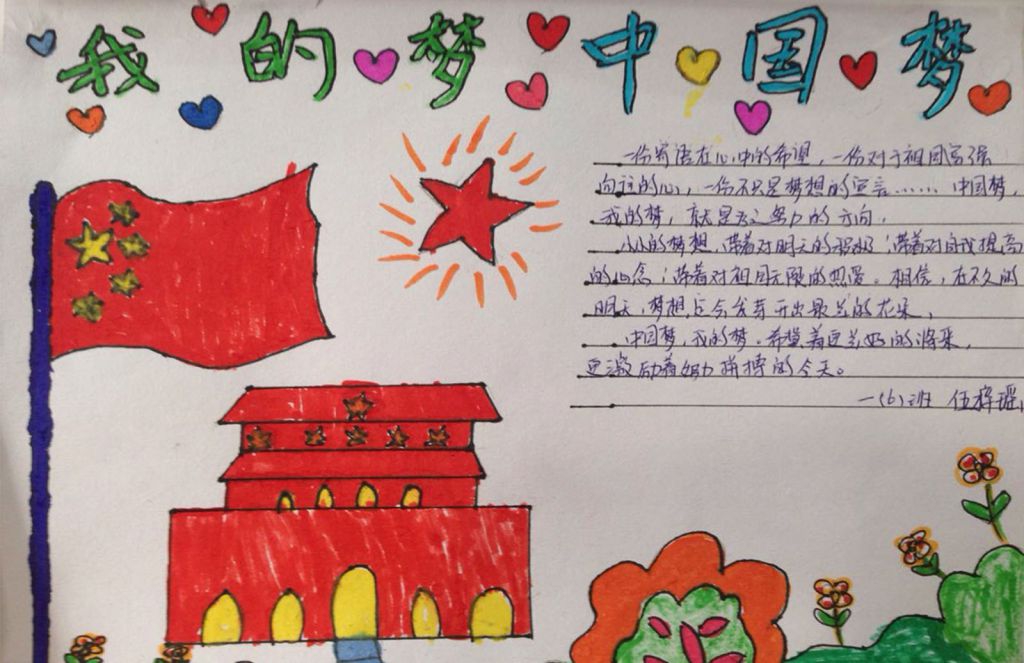 我的梦中国梦
一份寄语在心中的希望，一份对于祖国富强
向往的心，一份不只是梦想的宣言……中国梦，
我的梦，就是为之努力的方向，
小小的梦想，带着对明天的积极；带着对自我提高
的心念；带着对祖国无限的热爱。相信，在不久的
明天，梦想还会发芽开出最美的花朵，
中国梦，我的梦，希望着更美好的将来，
更激励着努力拼搏的今天。
一(6)班 伍梓瑶